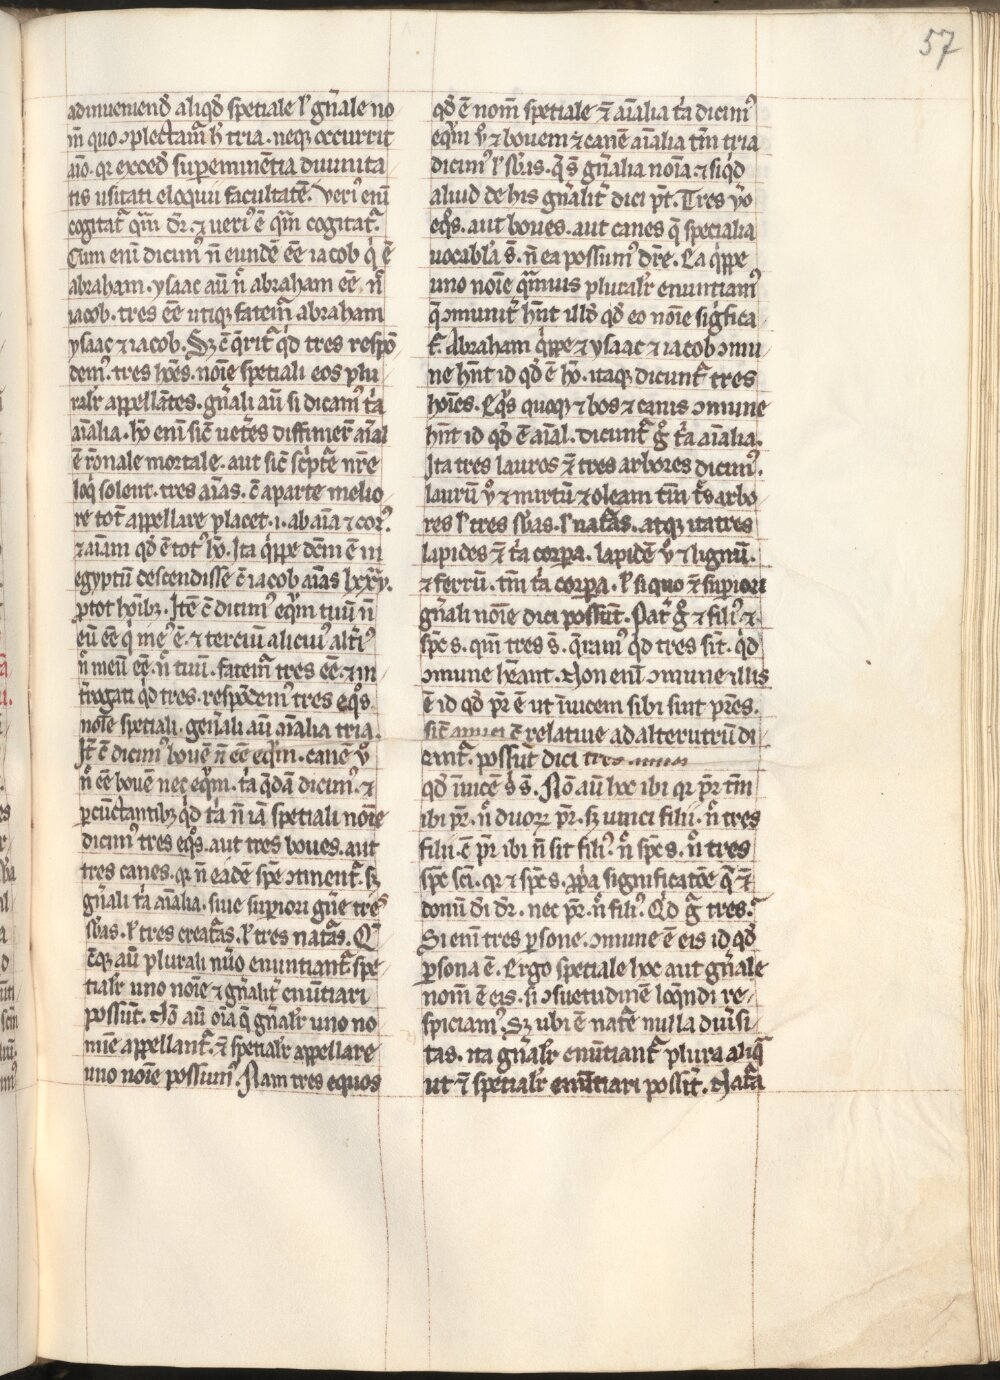 57
adinueniend̄ aliqd̄ spetiale ł gn̄ale no
m̄ quo ↄplectam̄ h̄ tria. neqꝫ occurrit
aīo. qꝛ exced̄ supeminētia diuinita
tis usitati eloquii facultatē. Veriꝰ enī
cogitat᷑ qm̄ dr̄. ⁊ ueriꝰ ē qm̄ cogitat᷑.
Cum eni dicimꝰ n̄ eundē ēē iacob q̇ ē
abraham. ysaac aū n̄ abraham ēē. n̄
iacob. tres ēē utiqꝫ fatem᷑ abraham
ysaac ⁊ iacob. Sꝫ c̄ q̄rit᷑ qd̄ tres respō
demꝰ. tres hōēs. noīe spetiali eos plu
ralr̄ appellātes. gn̄ali aū si dicamꝰ t̄a
aīalia. hō eni sic̄ uet̄es diffinier̄ aīal
ē rōnale mortale. aut sic̄ sc̄pt̄e nr̄e
loq̇ solent. tres aīas. c̄ aparte melio
re tot̄ appellare placet .i. ab aīa ⁊ corꝰ
⁊ aīam qd̄ ē totꝰ hō. Ita q̇ppe dc̄m ē in
egyptū descendisse c̄ iacob aīas lxxv.
ꝓ tot hōibꝫ. Itē c̄ dicimꝰ eqm̄ tuū n̄
eū ēē q̇ meꝰ ē. ⁊ terciū aliciuꝰ alt̄iꝰ
n̄ meū ēē. n̄ tuū. fatem᷑ tres ēē. ⁊ in
t̄rogati qd̄ tres. respōdemꝰ tres eq̄s.
noīe spetiali. gen̄ali aū aīalia tria.
It̄ c̄ dicimꝰ bouē n̄ ēē eqm̄. canē v̄
n̄ ēē bouē nec eqm̄. t̄a q̄dā dicimꝰ. ⁊
ꝑcūctantibꝫ qd̄ t̄a n̄ iā spetiali noīe
dicimꝰ tres eq̄s. aut tres boues. aut
tres canes. qꝛ n̄ eādē spē ↄtinent᷑. sꝫ
gn̄ali t̄a aīalia. siue supiori gn̄e tres
sb̄as. ł tres creat̄as. ł tres nat̄as. Q
c̄qꝫ aū plurali nūo enuntiant᷑ spe
tialr̄ uno noīe ⁊ gn̄alit᷑ enūtiari
possūt. Nō aū oīa q̄ gn̄alr̄ uno no
mīe appellant᷑. ⁊ spetialr̄ appellare
uno noīe possumꝰ. Nam tres equos
qd̄ ē nom̄ spetiale ⁊ aīalia t̄a dicimꝰ
eqm̄ v̄ ⁊ bouem ⁊ canē aīalia tm̄ tria
dicimꝰ ł sb̄as. q̄ s̄ gn̄alia noīa. ⁊ siqd̄
aliud de his gn̄alit᷑ dici pt̄. Tres v̄o
eq̄s. aut boues. aut canes q̄ specialia
uocabl̄a s̄. n̄ ea possumꝰ dr̄e. Ea q̇ppe
uno noīe q̄muis pluralr̄ enuntiamꝰ
q̄ ↄmunit᷑ hn̄t ill̄d qd̄ eo noīe sig̅fica
t᷑. Abraham q̇ppe ⁊ ysaac ⁊ iacob ↄmu
ne hn̄t id qd̄ ē hō. itaqꝫ dicunt᷑ tres
hōīes. Eq̄s quoqꝫ ⁊ bos ⁊ canis ↄmune
hn̄t id qd̄ ē aīal. dicunt᷑ g̊ t̄a aīalia.
Ita tres lauros ⁊ tres arbores dicimꝰ.
laurū v̄ ⁊ mirtū ⁊ oleam tm̄ t̄s arbo
res ł tres sb̄as. ł nat̄as. atqꝫ ita tres
lapides ⁊ t̄a corꝑa. lapidē v̄ ⁊ lignū.
⁊ ferrū. tm̄ t̄a corꝑa. ł siquo ⁊ supiori
gn̄ali noīe dici possūt. Pat᷑ g̊ ⁊ filiꝰ ⁊
spc̄s. qm̄ tres s̄. q̄ramꝰ qd̄ tres sīt. qd̄
ↄmune hēant. Non enī ↄmune illis
ē id qd̄ pr̄ ē ut īuicem sibi sint pr̄es.
sic̄ amici c̄ relatiue ad alterutrū di
cant᷑. possūt dici tres amici
qd̄ īuicē s̄ s̄. Nō aū hoc ibi qꝛ pr̄ tm̄
ibi pr̄. n̄ duoꝝ pr̄. sꝫ unici filii. n̄ tres
filii. c̄ pr̄ ibi n̄ sit filiꝰ. n̄ spc̄s. n̄ tres
spc̄ sc̄i. qꝛ ⁊ spc̄s. ꝓp̄a significatōe q̄ ⁊
donū di dr̄. nec pr̄. n̄ filiꝰ. Qd̄ g̊ tres.
Si eni tres ꝑsone. ↄmune ē eis id qd̄
ꝑsona ē. Ergo spetiale hoc aut gn̄ale
nom̄ ē eis. si ↄsuetudinē loq̄ndi re
spiciamꝰ. Sꝫ ubi ē nat̄e nulla diūsi
tas. ita gn̄alr̄ enūtiant᷑ plura aliq̄
ut ⁊ spetialr̄ enūtiari possīt. Nat̄a